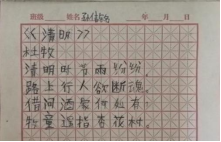 班级 姓名 年 月 日
《清明》
杜牧
清明时节雨纷纷,
路上行人欲断魂。
借问酒家何处有:
牧童遥指杏花村。